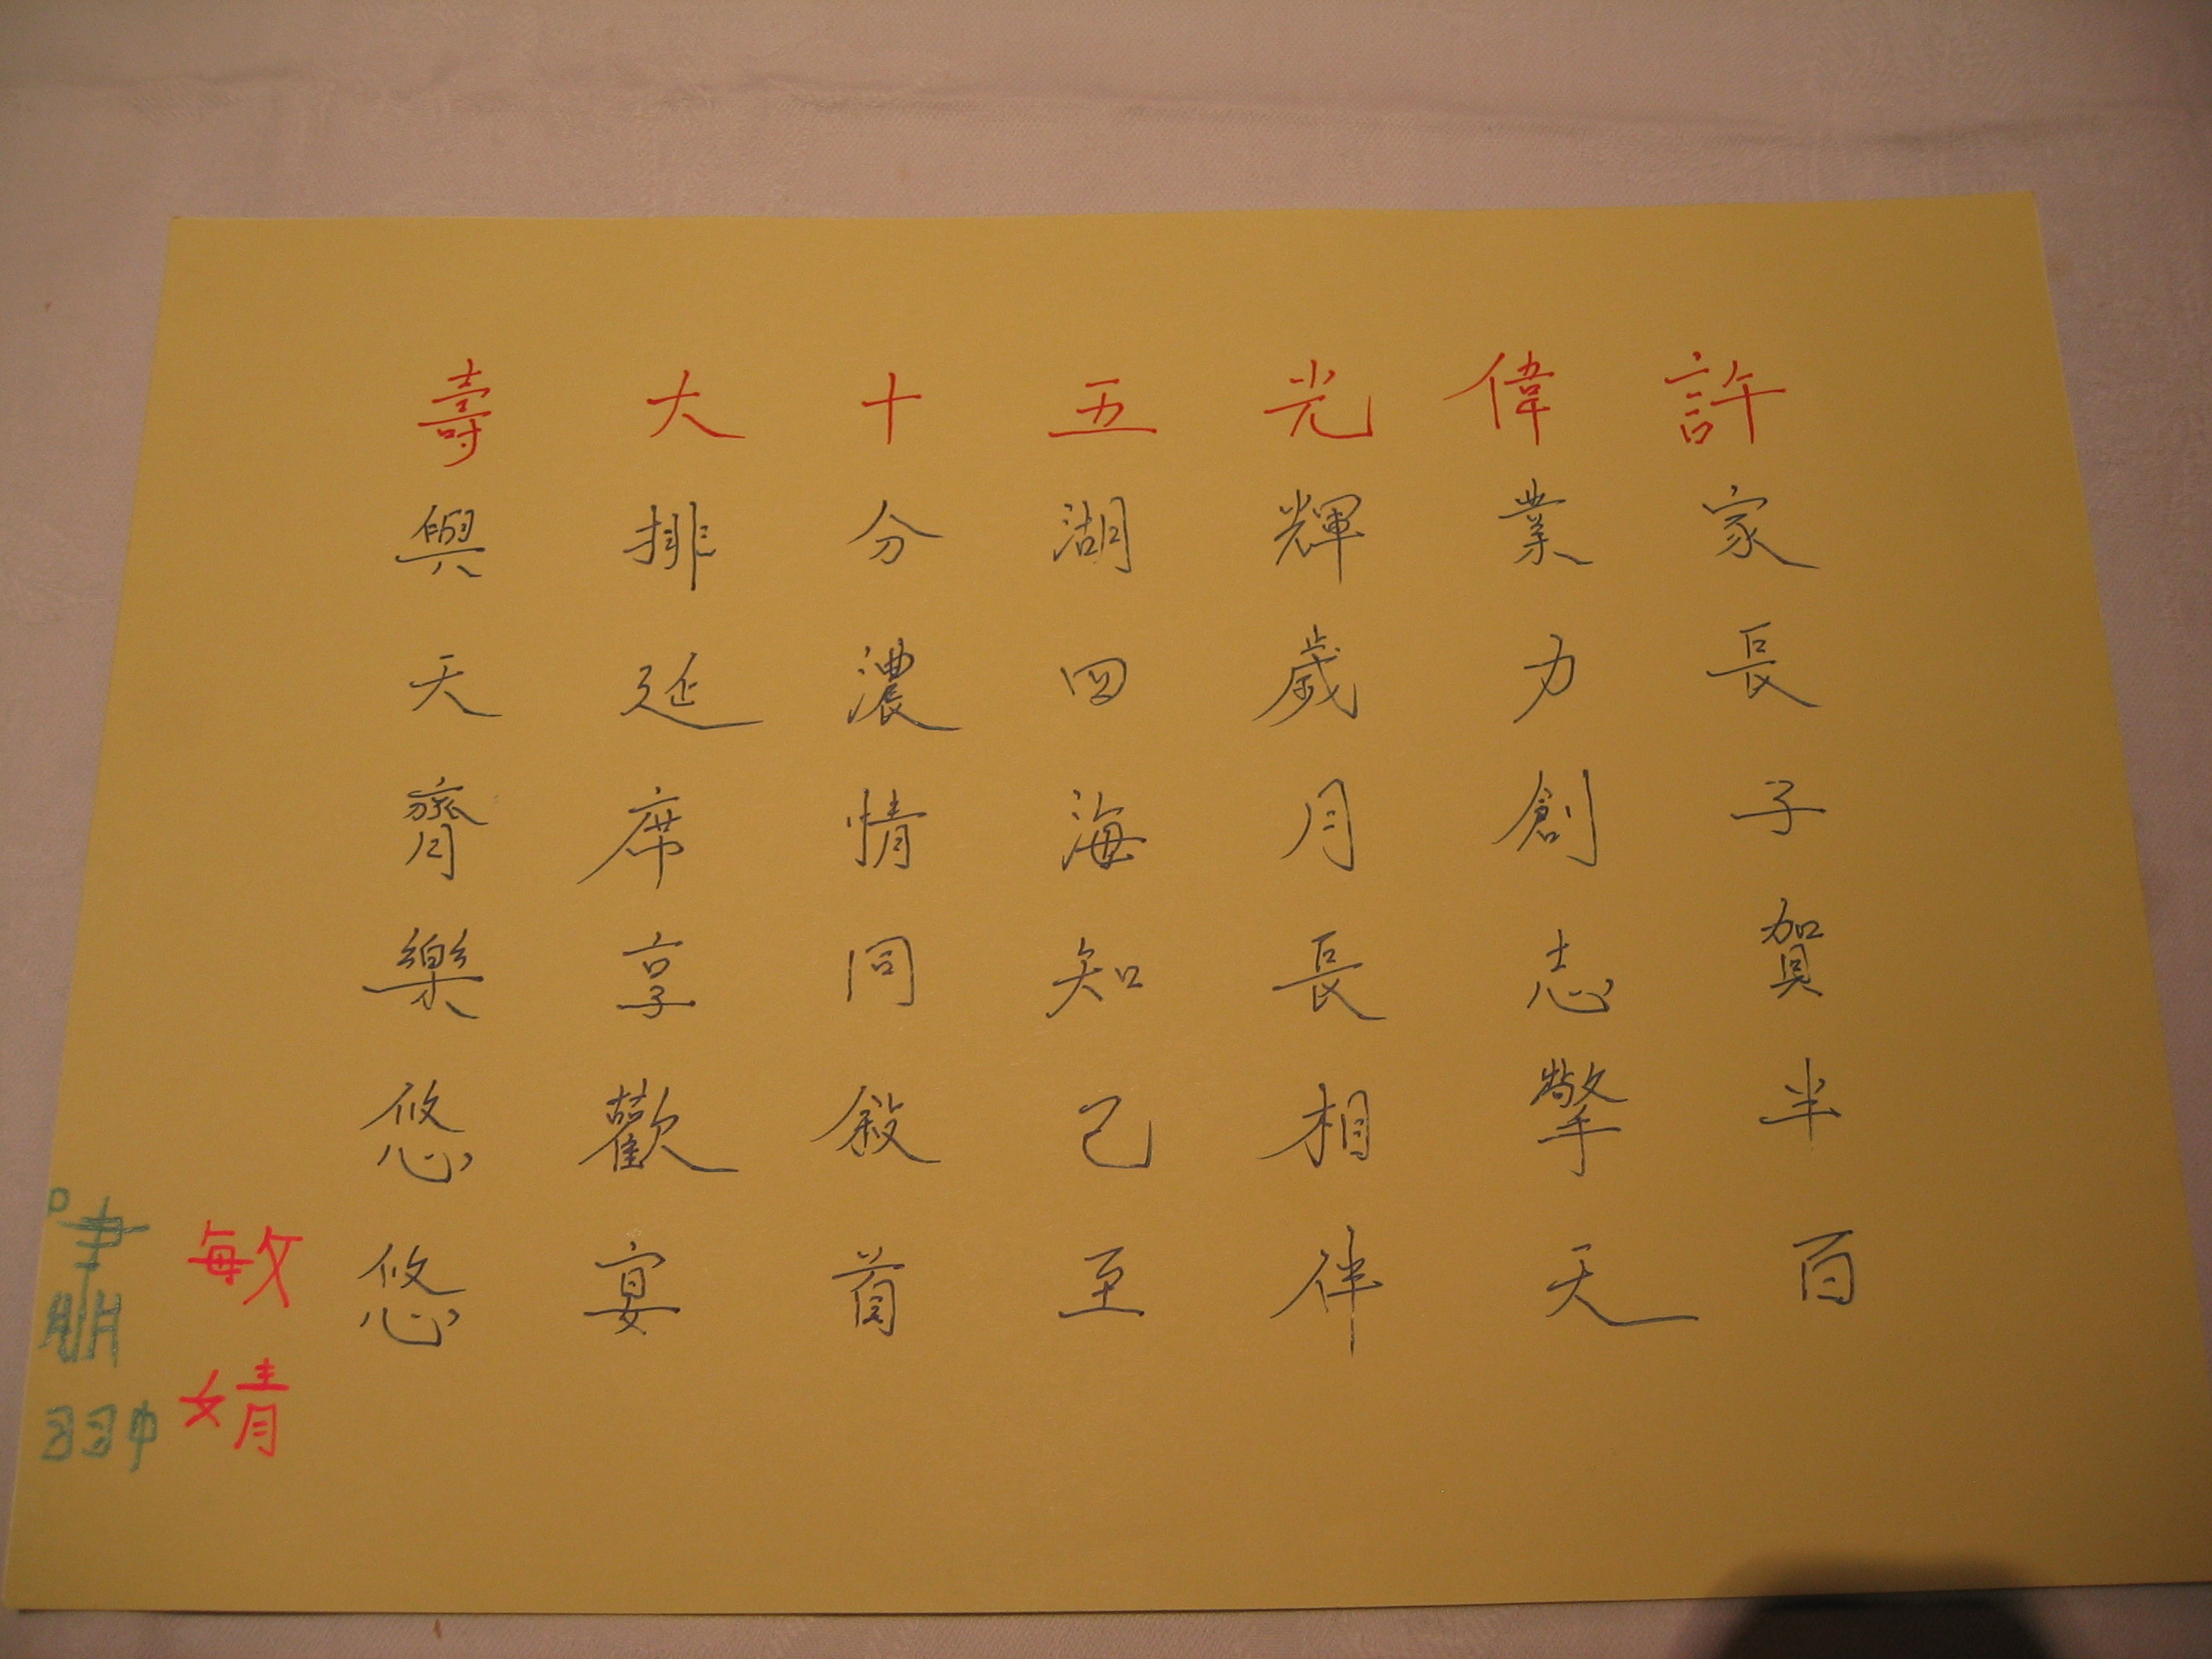 許家長子賀半百
偉業力創志擎天
光輝歲月長相伴
五湖四海知己至
十分濃情同敍首
大排延席享歡宴
壽與天齊樂悠悠
敏婧
嘯翀